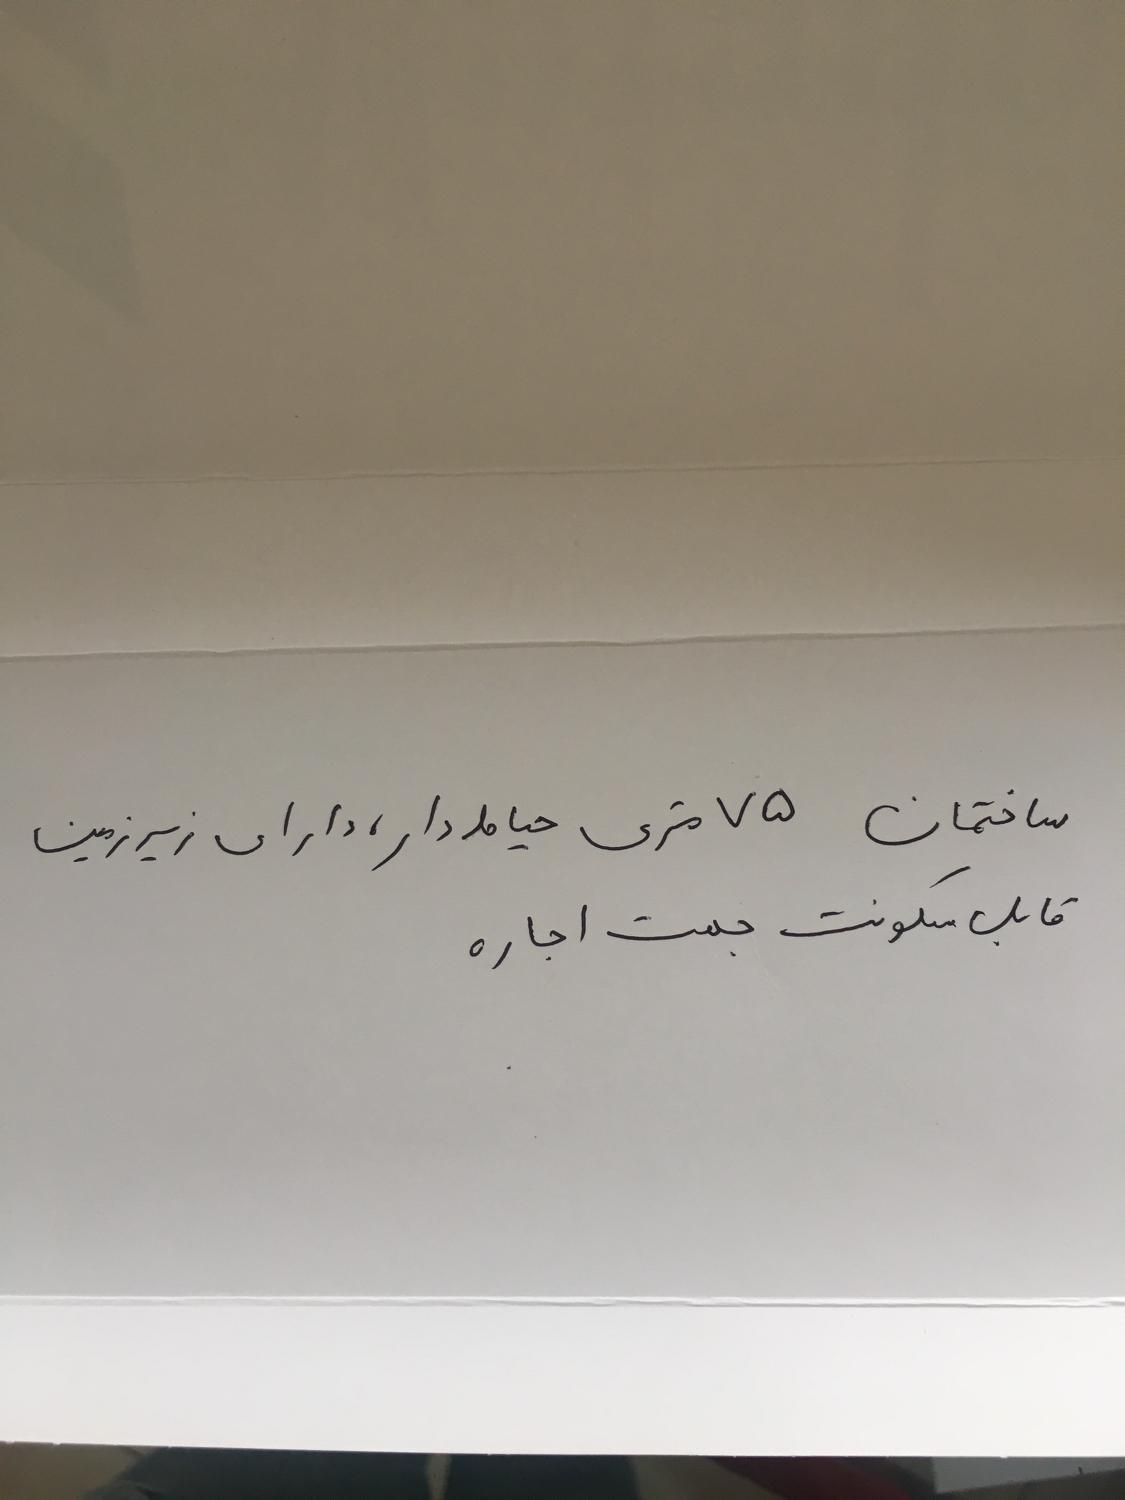 ساختمان ۷۵ متری حیاط دار، دارای زیرزمین
قابل سکونت جهت اجاره